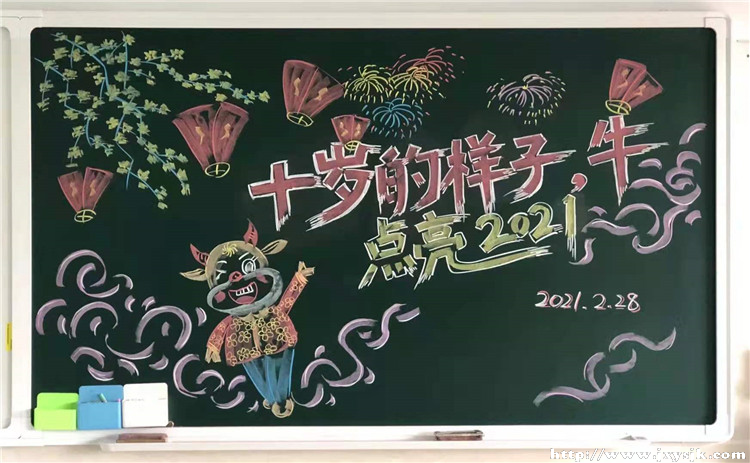 十岁的样子,牛
点亮2021
2021.2.28
http://www.jxysjk.com